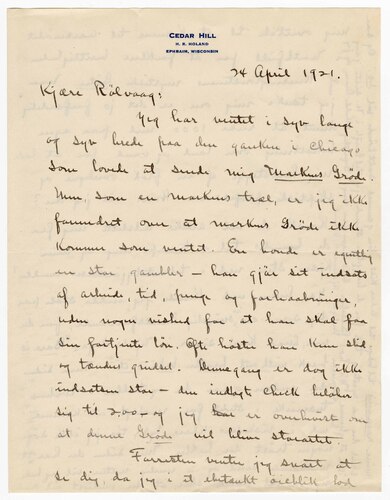 CEDAR HILL
H. R. HOLAND
EPHRAIM, WISCONSIN
24 April 1921.
Kjære Rölvaag:
Jeg har ventet i syv lange
og syv brede paa den ganken i Chicago
som lovede at sende mig Markens Gröde.
Men, som en markens træl, er jeg ikke
forundret over at markens Gröde ikke
kommer som ventet. En bonde er egentlig
en stor gambler — han gjör sit indsats
af arbeide, tid, penge og forhaabninger,
uden nogen vished for at han skal faa
sin fortjente lön. Ofte höster han kun skid
og tænders gnidsel. Dennegang er dog ikke
indsatsen stor — den indlagte check belöber
sig til 2.00 — og jeg er overbevist om
at denne Gröde vil blive storartet.
Forresten venter jeg snart at
se dig, da jeg i et ubetænkt öieblik lod